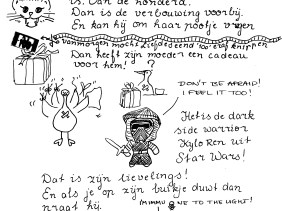 is. Van de honderd.
Dan is de verbouwing voorbij.
En kan hij om haar pootje vragen
Dan heeft zijn moeder een cadeau
voor hem!
?
DON'T BE AFRAID!
I FEEL IT TOO!
Het is de dark
side warrior
Kylo Ren uit
Star Wars!
Dat is zijn lievelings!
En als je op zijn buikje duwt dan
praat hij.
NE TO THE LIGHT!